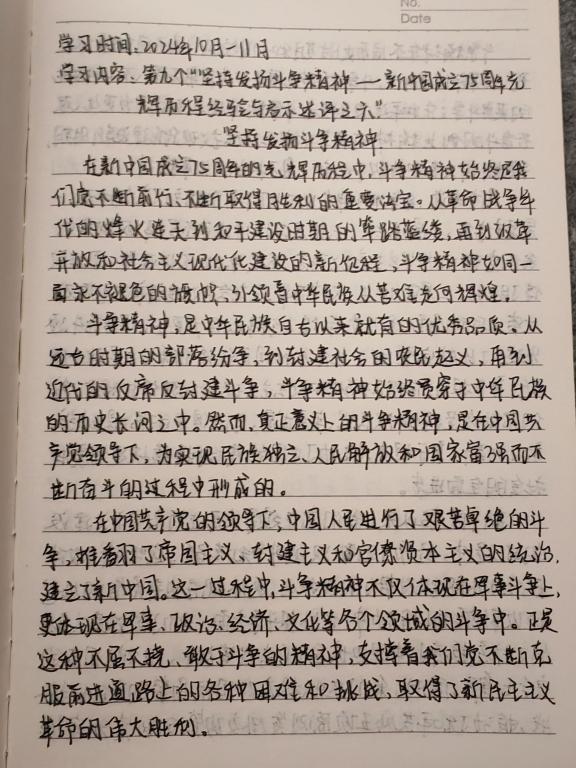 No.
Date
学习时间:2024年10月-11日
学习内容:第九个"坚持发扬斗争精神——新中国成立75周年光
辉历程经验与启示述评之六"
坚持发扬斗争精神
在新中国成立75周年的光辉历程中,斗争精神始终是我
们党不断前行、不断取得胜利的重要法宝。从革命战争年
代的烽火连天到和平建设时期的筚路蓝缕,再到改革
开放和社会主义现代化建设的新征程,斗争精神如同一
面永不褪色的旗帜,引领着中华民族从苦难走向辉煌。
斗争精神,是中华民族自古以来就有的优秀品质。从
远古时期的部落纷争,到封建社会的农民起义,再到
近代的反帝反封建斗争,斗争精神始终贯穿于中华民族
的历史长河之中。然而,真正意义上的斗争精神,是在中国共
产党领导下,为实现民族独立、人民解放和国家富强而不
断奋斗的过程中形成的。
在中国共产党的领导下,中国人民进行了艰苦卓绝的斗
争,推翻了帝国主义、封建主义和官僚资本主义的统治,
建立了新中国。这一过程中,斗争精神不仅体现在军事斗争上,
更体现在军事、政治、经济、文化等各个领域的斗争中。正是
这种不屈不挠、敢于斗争的精神,支撑着我们党不断克
服前进道路上的各种困难和挑战,取得了新民主主义
革命的伟大胜利。